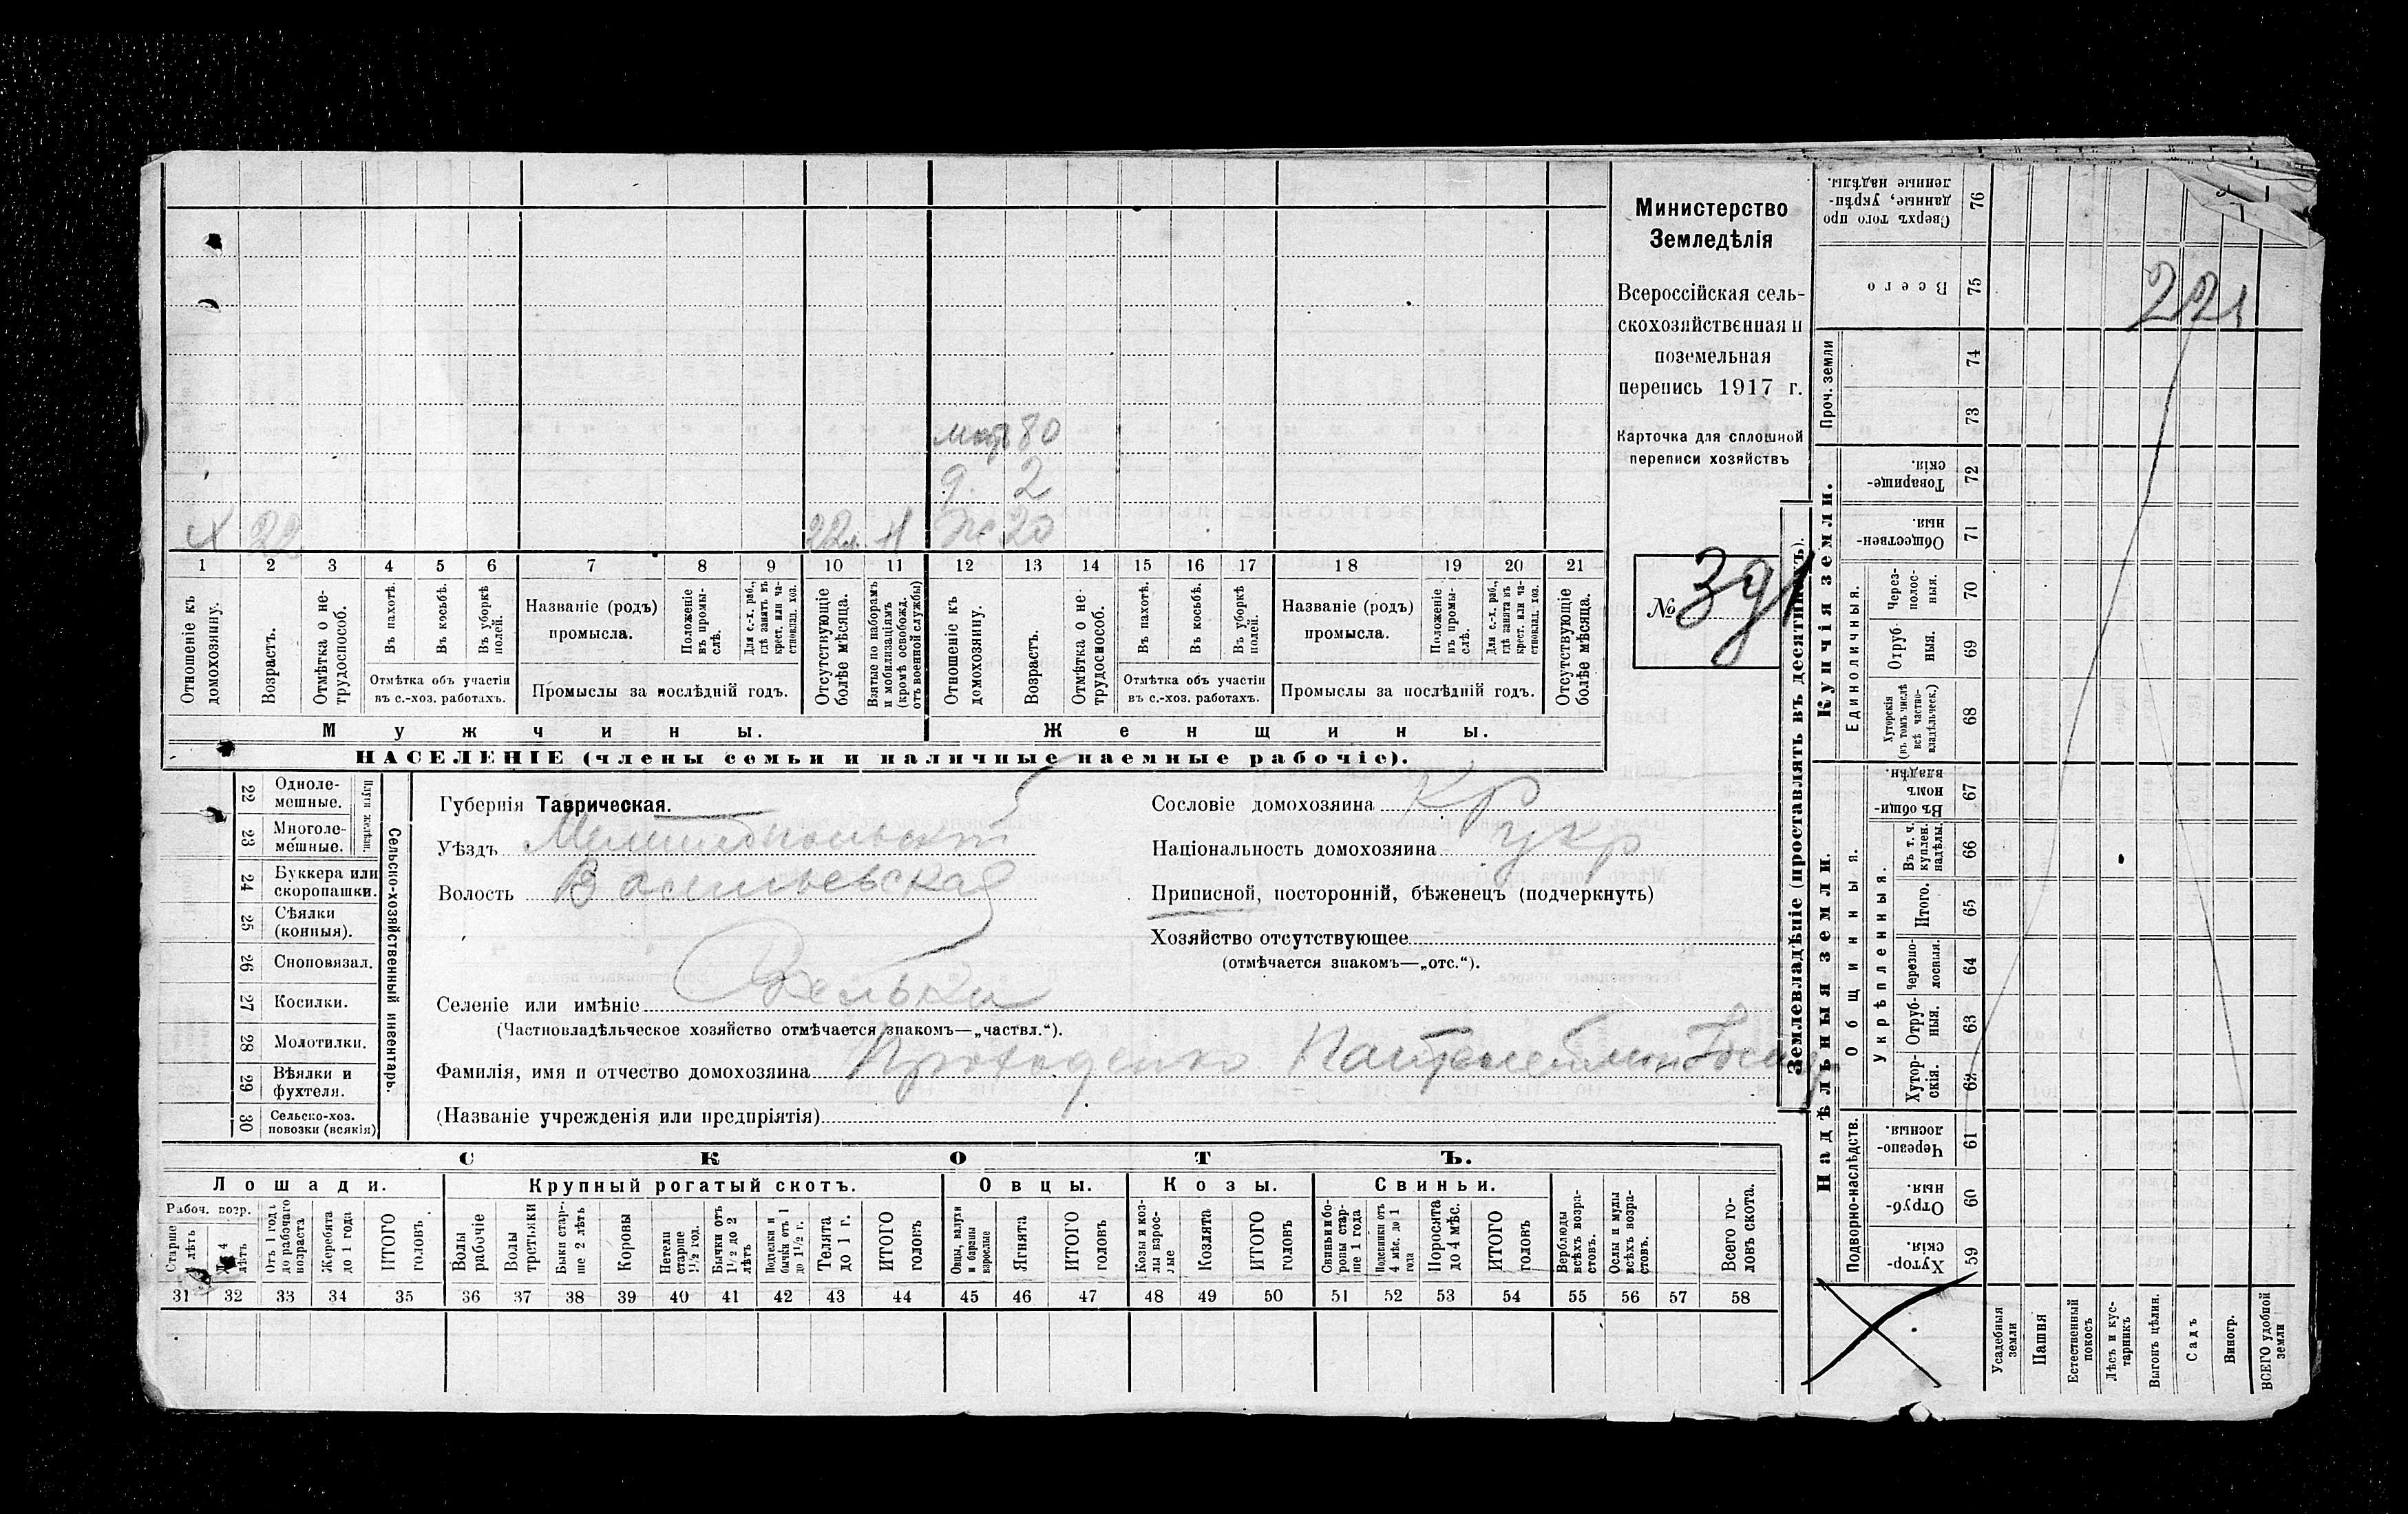 мат 80
д. 2
х 22 22м. н ж 20
1 2 3 4 5 6 7 8 9 10 11 12 13 14 15 16 17 18 19 20 21
Отношеніе къ домохозяину.
Возрастъ.
Отмѣтка о не-трудоспособ.
Въ пахотѣ.
Въ косьбѣ.
Въ уборкѣ полей.
Отмѣтка объ участіи
въ с.-хоз. работахъ.
Названіе (родъ)
промысла.
Положеніе въ промы-слѣ.
Для с.-х. раб., гдѣ занятъ въ крест. или ча-стновлад. хоз.
Промыслы за послѣдній годъ.
Отсутствующіе болѣе мѣсяца.
Взятые по наборамъ и мобилизаціямъ (кромѣ освобожд. отъ военной службы)
Отношеніе къ домохозяину.
Возрастъ.
Отмѣтка о не-трудоспособ.
Въ пахотѣ.
Въ косьбѣ.
Въ уборкѣ полей.
Отмѣтка объ участіи
въ с.-хоз. работахъ.
Названіе (родъ)
промысла.
Положеніе въ промы-слѣ.
Для с.-х. раб., гдѣ занята въ крест. или ча-стновлад. хоз.
Промыслы за послѣдній годъ.
Отсутствующіе болѣе мѣсяца.
Мужчины.
Женщины.
НАСЕЛЕНІЕ (члены семьи и наличные наемные рабочіе).
Министерство
Земледѣлія
Всероссійская сель-
скохозяйственная и
поземельная
перепись 1917 г.
Карточка для сплошной
переписи хозяйствъ
№
22 Одноле-мешные.
23 Многоле-мешные.
Плуги желѣзн.
24 Буккера или скоропашки.
25 Сѣялки (конныя).
26 Сноповязал.
27 Косилки.
28 Молотилки.
29 Вѣялки и фухтеля.
30 Сельско-хоз. повозки (всякія)
Сельско-хозяйственный инвентарь.
Губернія Таврическая.
Уѣздъ Мелитопольскій
Волость Васильевская
Селеніе или имѣніе
(Частновладѣльческое хозяйство отмѣчается знакомъ—„частвл.“).
Фамилія, имя и отчество домохозяина Проходенко Пантелеймон
(Названіе учрежденія или предпріятія)
Сословіе домохозяина кр
Національность домохозяина укр
Приписной, посторонній, бѣженецъ (подчеркнуть)
Хозяйство отсутствующее
(отмѣчается знакомъ—„отс.“).
СКОТЪ.
Лошади.
Крупный рогатый скотъ.
Овцы.
Козы.
Свиньи.
Рабоч. возр.
Старше лѣтъ
4 лѣтъ
Отъ 1 года до рабочаго возраста
Жеребята до 1 года
ИТОГО головъ
Волы рабочіе
Волы третьяки
Быки стар-ше 2 лѣтъ
Коровы
Нетели старше 1½ год.
Бычки отъ 1½ до 2 лѣтъ
Подтелки и бычки отъ 1 до 1½ г.
Телята до 1 г.
ИТОГО головъ
Овцы, валухи и бараны взрослые
Ягнята
ИТОГО головъ
Козы и коз-лы взрос-лые
Козлята
ИТОГО головъ
Свиньи и бо-ровы стар-ше 1 года
Подсвинки отъ 4 мѣс. до 1 года
Поросята до 4 мѣс.
ИТОГО головъ
Верблюды всѣхъ возра-стовъ.
Ослы и мулы всѣхъ возра-стовъ.
Всего го-ловъ скота.
31 32 33 34 35 36 37 38 39 40 41 42 43 44 45 46 47 48 49 50 51 52 53 54 55 56 57 58
Землевладѣніе (проставлять въ десятинахъ).
Купчія земли.
Надѣльныя земли.
Сверхъ того про данные, укрѣп-ленные надѣлы. 76
Всего 75
221
Проч. земли
74
73
Товарище-скія. 72
Обществен-ныя 71
Единоличныя.
Через-полос-ныя. 70
Отруб-ныя. 69
Хуторскія (въ томъ числѣ всѣ частно-владѣльческ.) 68
Въ общи-номъ владѣн. 67
Общинныя.
Укрѣпленныя.
Въ т. ч. куплен. надѣлы. 66
Итого. 65
Черезпо-лосныя. 64
Отруб-ныя. 63
Хутор-скія. 62
Подворно-наслѣдств.
Черезпо-лосныя. 61
Отруб-ныя. 60
Хутор-скія. 59
Усадебныя земли
Пашня
Естественный покосъ
Лѣсъ и кус-тарникъ
Выгонъ цѣлин.
Садъ
Виногр.
ВСЕГО удобной земли